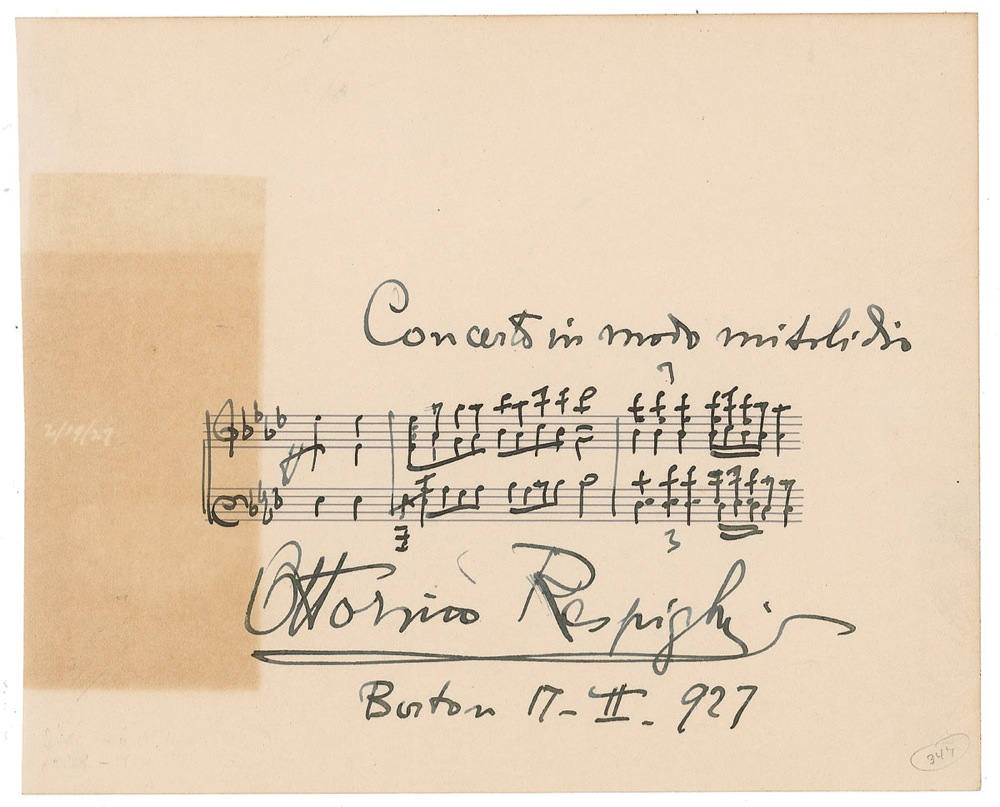 Concerto in modo misolidio
2/19/27
ff
3
3
Ottorino Respighi
Boston 17-II. 927
344